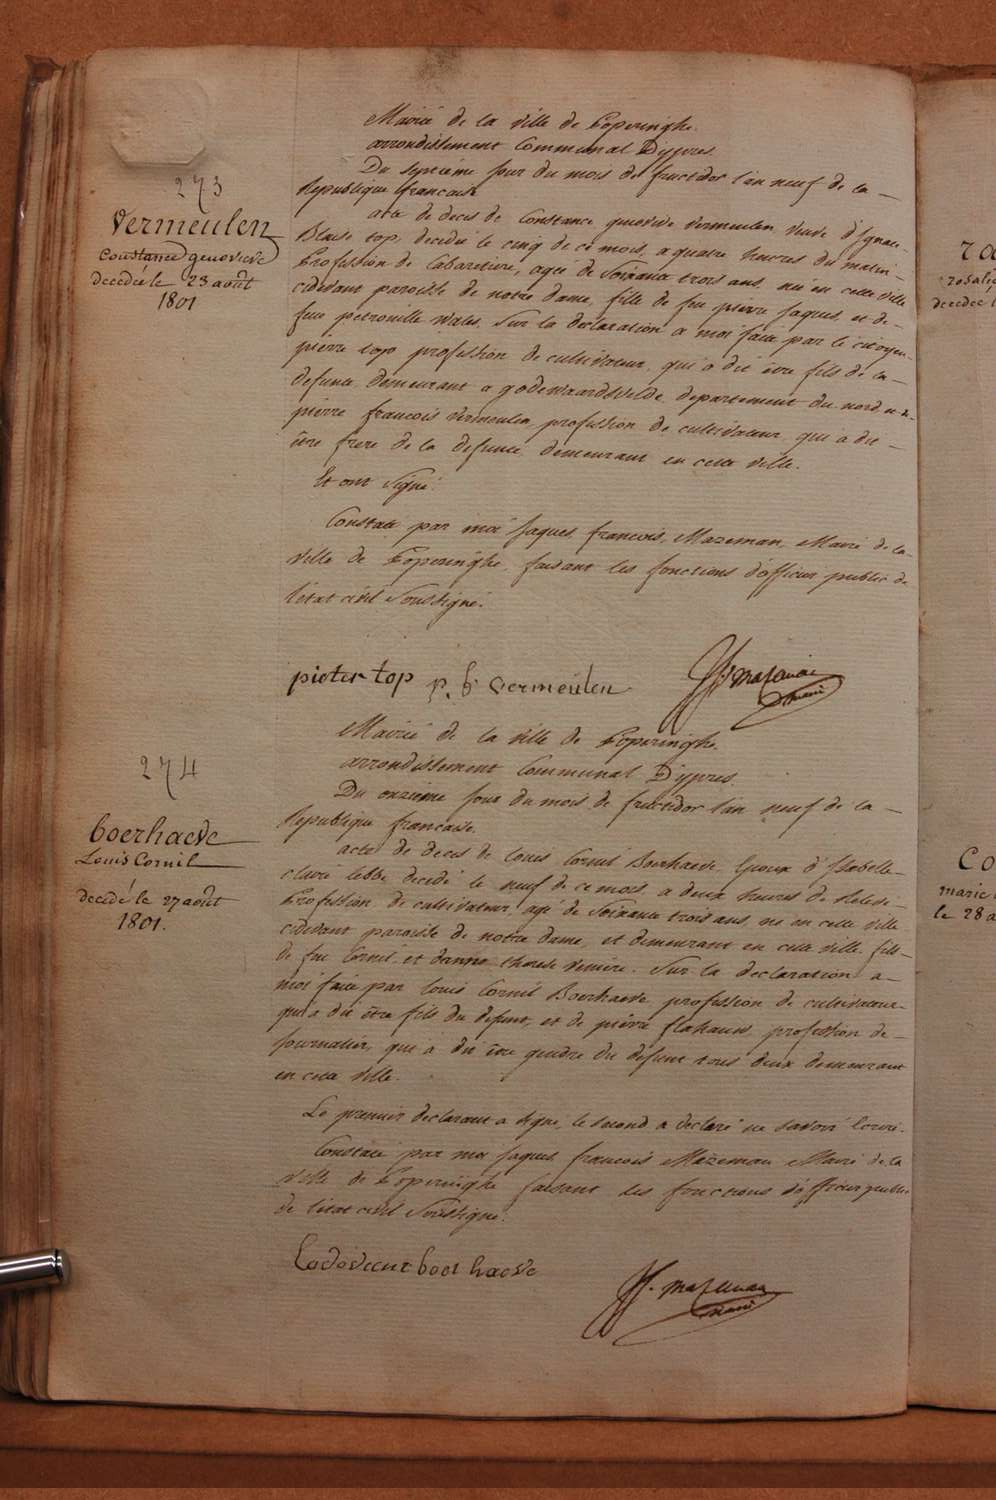 273
vermeulen
Constance genovieve
decedée le 23 août
1801
Mairie de la ville de Poperinghe.
arrondissement Communal D'ypres.
Du septieme jour du mois de fructidor l'an neuf de la
Republique francaise
acte de deces de Constance genovive vermeulen, veuve d'Ignace
Blaise top, decedée le cinq de ce mois, a quatre heures du matin
Profession de Cabaretiere, agée de soixante trois ans, née en cette ville
cidevant paroisse de notre dame, fille de feu pierre jaques, et de
feue petronille Wales. Sur la declaration a moi faite par le citoyen
pierre top profession de cultivateur, qui a dit être fils de la
defunte, demeurant a godewaardsvelde, departement du nord et de
pierre francois vermeulen, profession de cultivateur, qui a dit
être frere de la defunte, demeurant en cette ville.
Et ont signé.
Constaté par moi jaques francois Mazeman, Maire de la
ville de Poperinghe, faisant les fonctions d'officier public de
l'etat civil soussigné.
pieter top p. f. vermeulen
JF. Mazeman
maire
274
boerhaeve
Louis Cornil
decedé le 27 août
1801.
Mairie de la ville de Poperinghe.
arrondissement Communal D'ypres.
Du onzieme jour du mois de fructidor l'an neuf de la
Republique francaise.
acte de deces de Louis Cornil Boerhaeve, Epoux d'Isabelle
claire lebbe decedé le neuf de ce mois, a deux heures de relevé
Profession de cultivateur, agé de soixante trois ans, né en cette ville
cidevant paroisse de notre dame, et demeurant en cette ville, fils
de feu Cornil, et d'anne therese. Sur la declaration a
moi faite par louis Cornil Boerhaeve, profession de cultivateur
qui a dit être fils du defunt, et de pierre flahauw, profession de
journalier, qui a dit être gendre du defunt tous deux demeurant
en cette ville.
Le premier declarant a signé, le second a declaré ne savoir ecrire.
Constaté par moi jaques francois Mazeman Maire de la
ville de Poperinghe faisant les fonctions d'officier public
de l'etat civil soussigné.
Lodovicus boerhaeve
JF. Mazeman
maire
rosalie
decedée l
co
marie
le 28 a